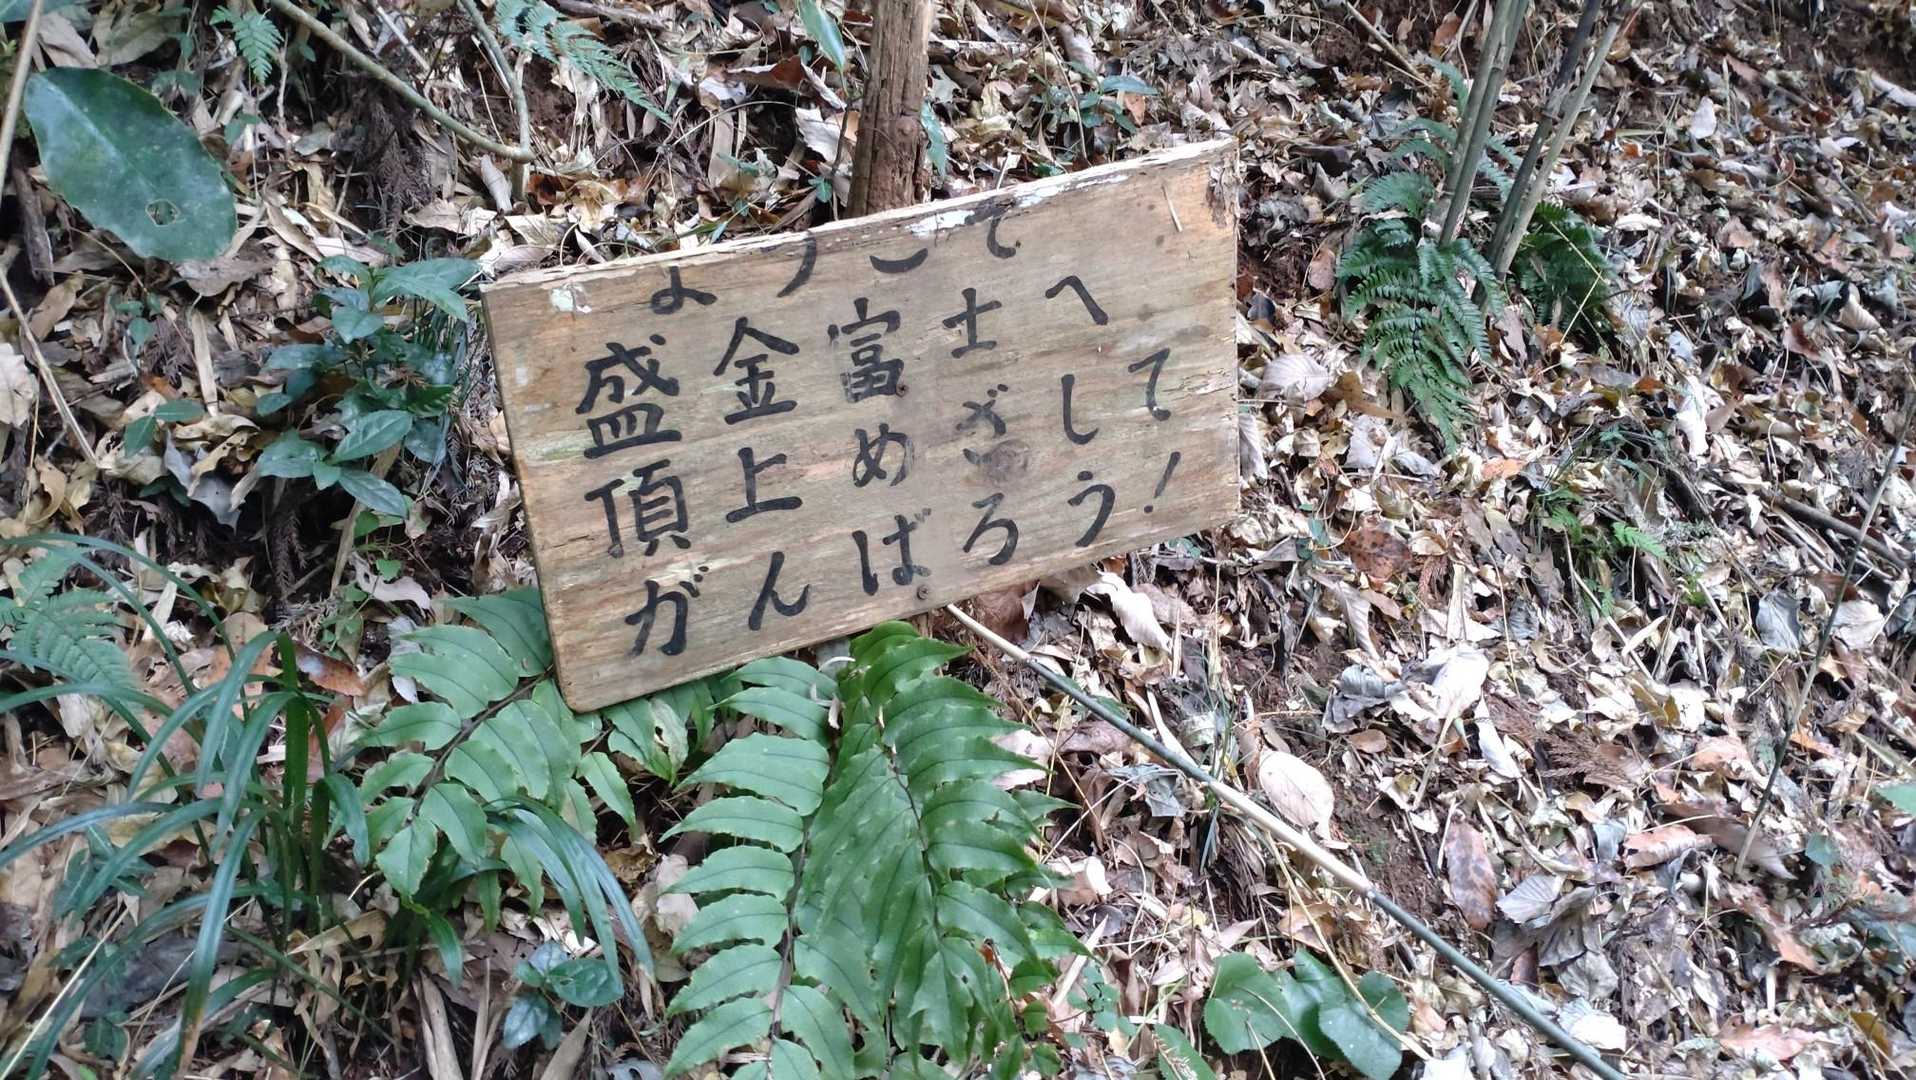 ようこそ
盛金富士へ
頂上めざして
がんばろう!